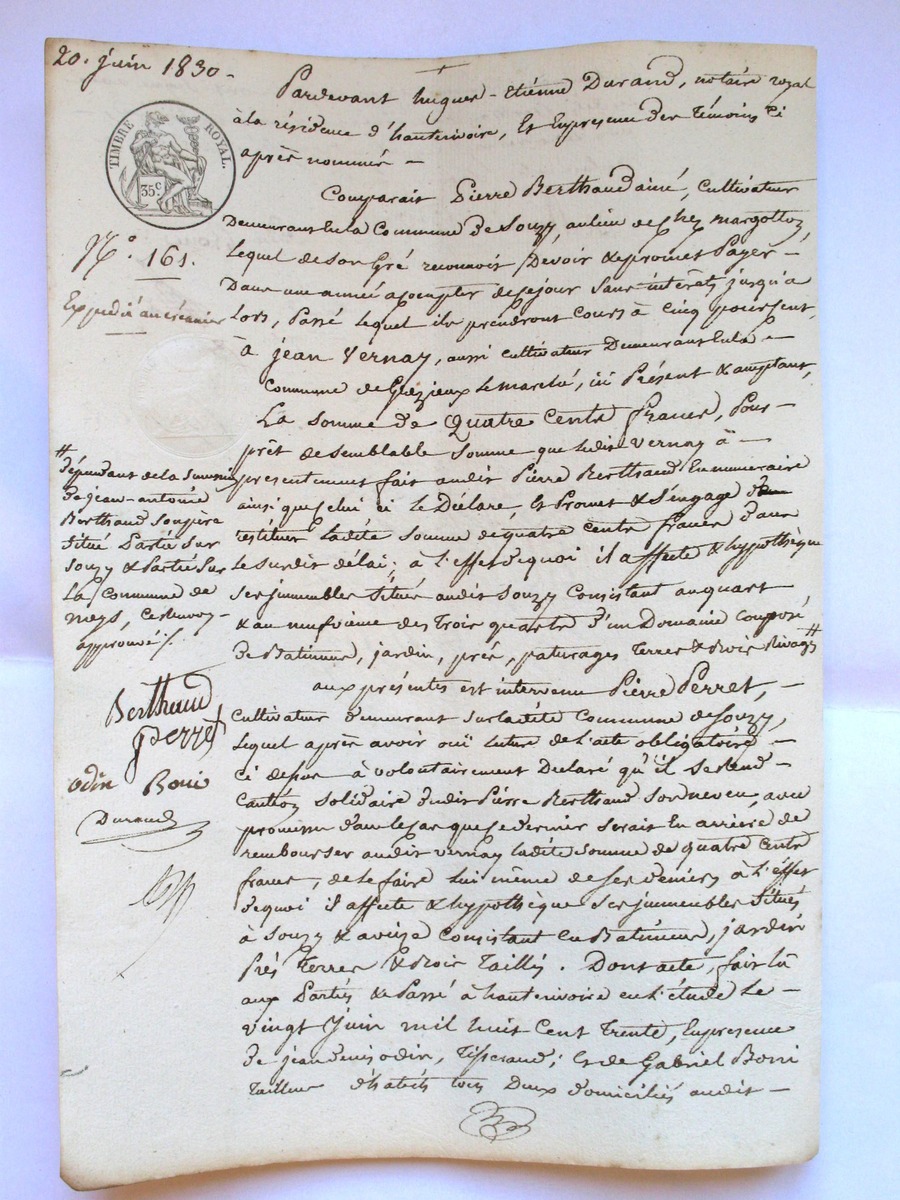 20. juin 1830 -
TIMBRE ROYAL.
35 c.
N.° 161.
Expédié au créancier
Pardevant hugues-Etienne Durand, notaire royal
à la résidence d'hauterivoire, Et En presence des Témoins Ci
après nommés -
Comparait Pierre Berthaud ainé, Cultivateur
Demeurant En la Commune de Souzy, au lieu de Chez margottoz,
Lequel de son Gré reconnoit Devoir & promet Payer -
Dans une année à compter de ce jour sans intérêts jusqu'à
Lors, Passé lequel ils prendront Cours à Cinq pour cent,
à jean Vernay, aussi cultivateur Demeurant En la -
Commune de Grézieux le marché, ici Présent & acceptant,
La somme de Quatre Cents francs, Pour -
prêt de semblable somme que ledit Vernay a -
présentement fait audit Pierre Berthaud En numeraire
ainsi que celui ci le Déclare, Et Promet & s'engage de
restituer Ladite somme de quatre Cents francs dans
Le susdit délai; à l'effet de quoi il affecte & hypothèque
Ses immeubles Situés audit Souzy Consistant au quart
& au neufvième des Trois quarts d'un Domaine Composé
De Batiments, jardin, prés, paturages Terres & Bois Rivages #
# dépendant de la Succession
de jean-antoine
Berthaud Son père
Situé Partie Sur
Souzy & Partie Sur
La Commune de
meys, Ce renvoy -
approuvé ./.
Berthaud
Perret
odin Boni
Durand
aux présentes est intervenu Pierre Perret, -
Cultivateur demeurant Sur ladite Commune de Souzy,
Lequel après avoir ouï lecture de l'acte obligatoire -
Ci dessus à volontairement Declaré qu'il se rend -
Caution Solidaire dudit Pierre Berthaud Son neveu, avec
promesse dans le cas que ce dernier serait En arrière de
rembourser audit Vernay ladite Somme de quatre Cents
francs, de le faire Lui même de ses deniers à l'effet
de quoi il affecte & hypothèque Ses immeubles Situés
à Souzy & aveize Consistant En Batiments, jardin
Prés Terres & Bois Taillis. Dont acte, fait lû
aux Parties & Passé à hauterivoire en l'étude Le -
vingt juin mil huit Cent Trente, En presence
de jean denis odin, Tisserand; Et de Gabriel Boni
Tailleur d'habits tous Deux domiciliés audit -